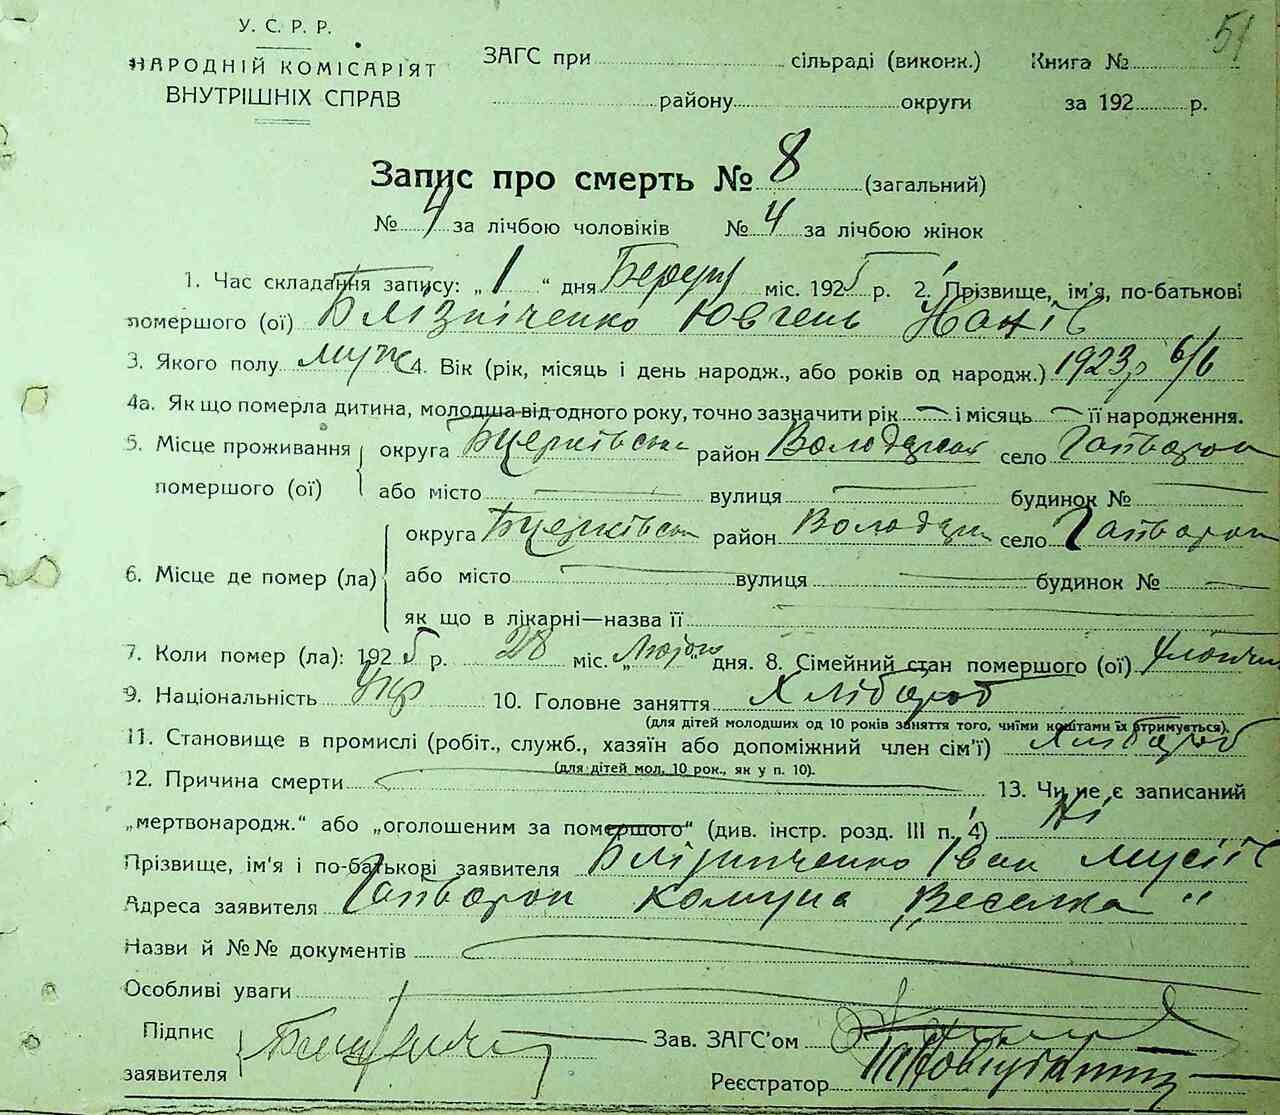 51
У. С. Р. Р.
НАРОДНІЙ КОМІСАРІЯТ
ВНУТРІШНІХ СПРАВ
ЗАГС при сільраді (виконк.) Книга №
району округи за 192 р.
Запис про смерть № 8 (загальний)
№ 4 за лічбою чоловіків № 4 за лічбою жінок
1. Час складання запису: „ 1 “ дня міс. 1925 р. 2. Прізвище, ім'я, по-батькові
помершого (ої)Блізніченко Ювгень
3. Якого полу муж 4. Вік (рік, місяць і день народж., або років од народж.) 1923 р 6/6
4а. Як що померла дитина, молодша від одного року, точно зазначити рік і місяць її народження.
5. Місце проживання помершого (ої) округа Бцерківська район село Гайворон
або місто вулиця будинок №
6. Місце де помер (ла) округа Бцерківськ район Володарськ село Гайворон
або місто вулиця будинок №
як що в лікарні—назва її
7. Коли помер (ла): 1925 р. 28 міс. „Лютого“ дня. 8. Сімейний стан помершого (ої)
9. Національність Укр 10. Головне заняття Хлібороб
(для дітей молодших од 10 років заняття того, чиїми коштами їх втримується).
11. Становище в промислі (робіт., служб., хазяїн або допоміжний член сім'ї) Хлібороб
(для дітей мол. 10 рок., як у п. 10).
12. Причина смерти 13. Чи не є записаний
„мертвонародж.“ або „оголошеним за помершого“ (див. інстр. розд. III п. 4) Ні
Прізвище, ім'я і по-батькові заявителя Блізниченко Іван Мусіїв
Адреса заявителя Гайворон Комуна Веселка "
Назви й №№ документів
Особливі уваги
Підпис заявителя
Зав. ЗАГС'ом
Реєстратор